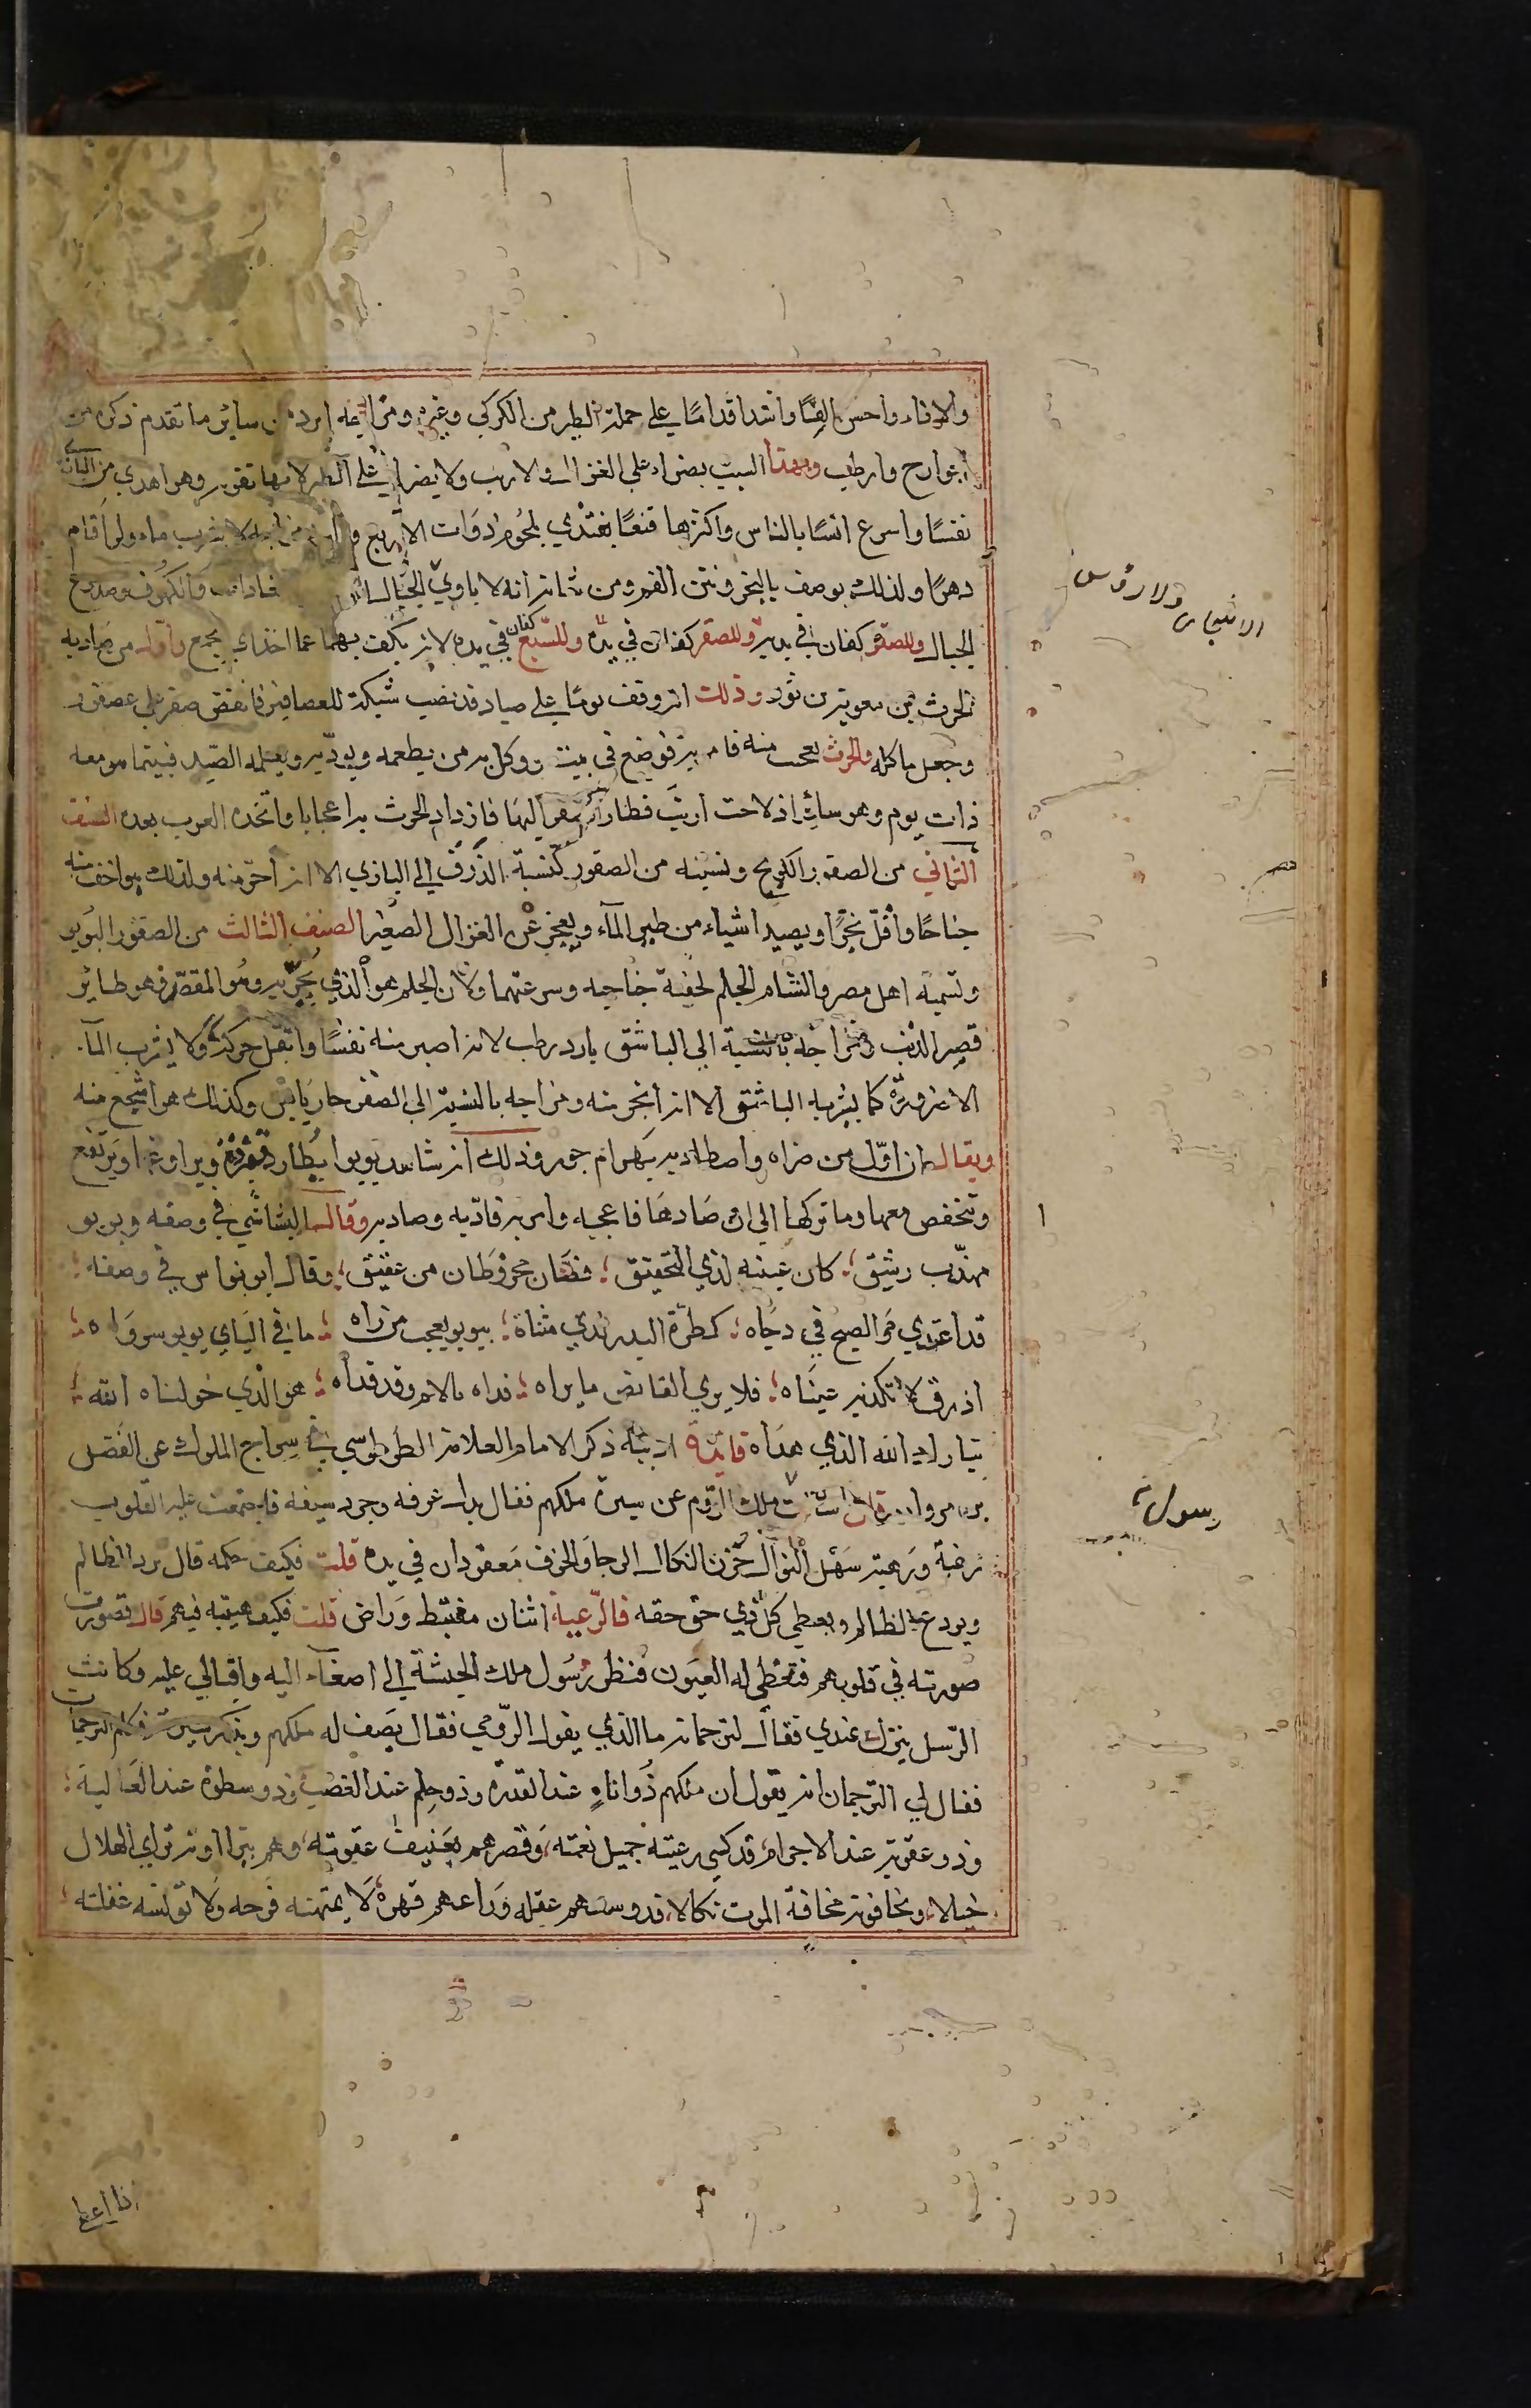 والاذاء واحسن الفًا واشد اقدامًا على جملة الطير من الكركي وغيره ومزاجه ابرد من ساير ما تقدم ذكره من
الجوارح وارطب وبهذا السبب يضراء على الغزال والارنب ولا يضرا على الطير لانها تفوته وهو اهدى من البازي
نفسًا واسرع انسًا بالناس واكثرها قنعًا يغتذي بلحوم ذوات الاربع ولا يشرب ماء ولو اقام
دهرًا ولذلك يوصف بالبخر ونتن الفم ومن شانه انه لا ياوي الجبال والكهوف وصدوع
الجبال وللصقر كفان في يديه وللصقر كفان في يده وللسبع كفان في يده لانه يكف بهما عما اخذاي يجمع واول من صاد به
الحرث بن معوية بن ثور وذلك انه وقف يومًا على صياد قد نصب شبكة للعصافير فانقض صقر على عصفور
وجعل ياكله والحرث يعجب منه فامر به فوضع في بيت ووكل به من يطعمه ويودّبه ويعلمه الصيد فبينما هو معه
ذات يوم وهو سائر اذ لاحت ارنب فطار الصقر اليها فازداد الحرث به اعجابا واتخذه العرب بعده الصنف
الثاني من الصقور الكونج ونسبته من الصقور كنسبة الزرق الى البازي الا انه احرّ منه ولذلك هو اخف منه
جناحًا واقلّ بخرًا ويصيد اشياء من طير المآء ويعجز عن الغزال الصغير الصنف الثالث من الصقور اليويو
وتسميه اهل مصر والشام الجلم لخفة جناحيه وسرعتهما ولان الجلم هو الذي يُجزّ به وهو المقصّ وهو طائر
قصير الذنب ومزاجه بالنسبة الى الباشق بارد رطب لانه اصبر منه نفسًا واثقل حركةً ولا يشرب المآ
الا ضرورة كما يشربه الباشق الا انه ابخر منه ومزاجه بالنسبة الى الصقر حار يابس وكذلك هو اشجع منه
ويقال ان اوّل من ضراه واصطاد به بهرام جور وذلك انه شاهد يويوا يُطارد قنبرة ويراوغها ويرتفع
وتنخفض معها وما تركها الى ان صادها فاعجبه وامر به فادّبه وصاد به وقال الناشي في وصفه ويويو
مهذّب رشيق؛ كان عينيه لذي التحقيق؛ فصّان مخروطان من عقيق؛ وقال ابو نواس في وصفه؛
قد اغتدي والصبح في دجاه؛ كطرّة البدر لدي مثناه؛ بيويو يعجب من راه؛ ما في اليآيي يويو سواه؛
ازرق لا تكذبه عيناه؛ فلا يرى القانص ما يراه؛ فداه بالام وقد فداه؛ هو الذي خولناه الله؛
تبارك الله الذي هداه فايدة ادبيّه ذكر الامام العلامة الطرطوسي في سراج الملوك عن الفضل
بن مروان قال سالت ملك الروم عن سيرة ملكهم فقال بذل عرفه وجرد سيفه فاجتمعت عليه القلوب
رغبة ورهبة سَهْل النوال حُزن النكال الرجا والخوف معقودان في يده قلت فكيف حكمه قال يرد المظالم
ويردع الظالم ويعطي كل ذي حق حقه فالرّعية اثنان مغتبط وراض قلت فكيف هيبته فيهم قال تصورت
صورته في قلوبهم فتغضى له العيون فنظر رسُول ملك الحبشة الى اصغآء اليه واقبالي عليه وكانت
الرسل ينزل عندي فقال لترجمانه ما الذي يقول الرّومي فقال يَصف له ملكهم ويذكر سيرته فكلم الترجمان
فقال لي الترجمان انه يقول ان ملكهم ذُو اناةٍ عند القدرة وذو حلم عند الغضب وذو سطوة عند المغالبة؛
وذو عقوبة عند الاجرام، قد كسى رعيته جميل نعمته، وقصرهم بعنيف عقوبته، وهم يتراأونه ترأي الهلال
خيالا، ويخافونه مخافة الموت نكالا، قد وسعهم عقله وَراعهم قهره لا يمتهنه فرحه ولا تولسه غفلته؛
رسول
مصر
اذا اعطى